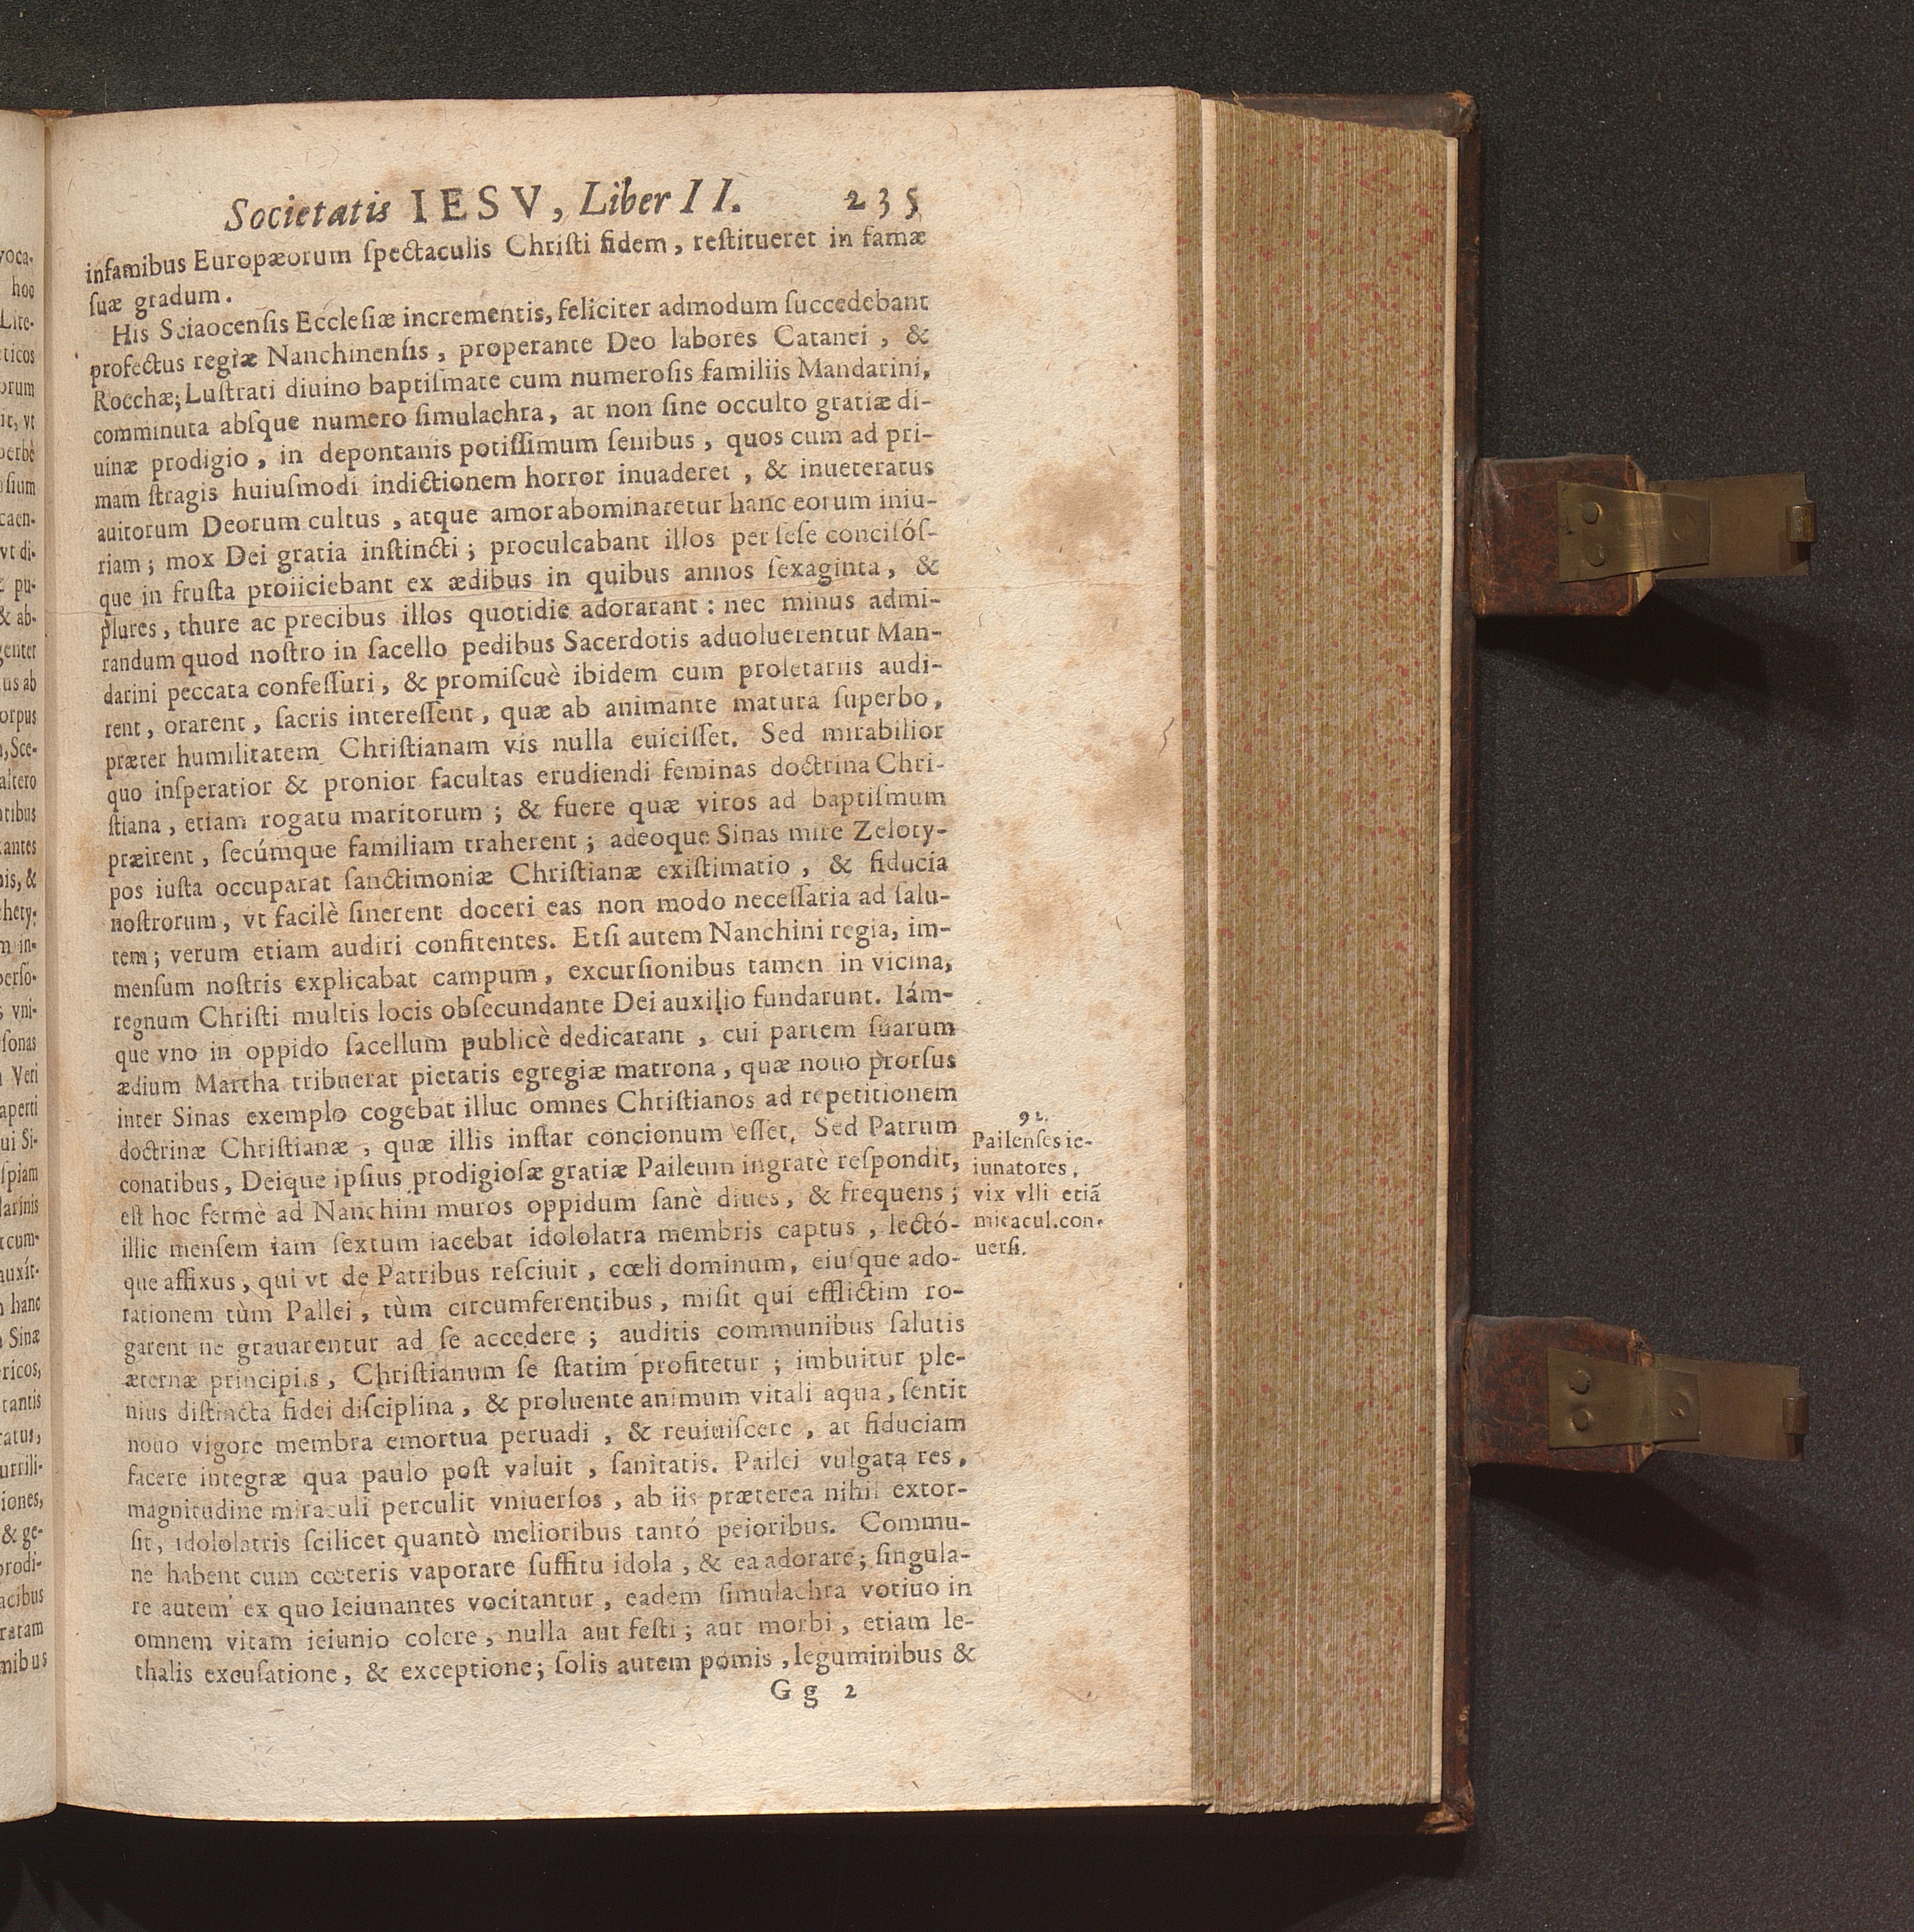 Societatis IESV, Liber II. 235
infamibus Europæorum ſpectaculis Chriſti fidem, reſtitueret in famæ
ſuæ gradum.
His Sciaocenſis Eccleſiæ incrementis, feliciter admodum ſuccedebant
profectus regiæ Nanchinenſis, properante Deo labores Catanei, &
Rocchæ; Luſtrati diuino baptiſmate cum numeroſis familiis Mandarini,
comminuta abſque numero ſimulachra, at non ſine occulto gratiæ di-
uinæ prodigio, in depontanis potiſſimum ſenibus, quos cum ad pri-
mam ſtragis huiuſmodi indictionem horror inuaderet, & inueteratus
auitorum Deorum cultus, atque amor abominaretur hanc eorum iniu-
riam; mox Dei gratia inſtincti; proculcabant illos per ſeſe conciſóſ-
que in fruſta proiiciebant ex ædibus in quibus annos ſexaginta, &
plures, thure ac precibus illos quotidie adorarant: nec minus admi-
randum quod noſtro in ſacello pedibus Sacerdotis aduoluerentur Man-
darini peccata confeſſuri, & promiſcuè ibidem cum proletariis audi-
rent, orarent, ſacris intereſſent, quæ ab animante matura ſuperbo,
præter humilitatem Chriſtianam vis nulla euiciſſet. Sed mirabilior
quo inſperatior & pronior facultas erudiendi feminas doctrina Chri-
ſtiana, etiam rogatu maritorum; & fuere quæ viros ad baptiſmum
præirent, ſecúmque familiam traherent; adeoque Sinas mire Zeloty-
pos iuſta occuparat ſanctimoniæ Chriſtianæ exiſtimatio, & fiducia
noſtrorum, vt facilè ſinerent doceri eas non modo neceſſaria ad ſalu-
tem; verum etiam audiri confitentes. Etſi autem Nanchini regia, im-
menſum noſtris explicabat campum, excurſionibus tamen in vicina,
regnum Chriſti multis locis obſecundante Dei auxilio fundarunt. Iám-
que vno in oppido ſacellum publicè dedicarant, cui partem ſuarum
ædium Martha tribuerat pietatis egregiæ matrona, quæ nouo prorſus
inter Sinas exemplo cogebat illuc omnes Chriſtianos ad repetitionem
doctrinæ Chriſtianæ, quæ illis inſtar concionum eſſet. Sed Patrum
conatibus, Deique ipſius prodigioſæ gratiæ Paileum ingratè reſpondit,
eſt hoc fermè ad Nanchini muros oppidum ſanè diues, & frequens;
illic menſem iam ſextum iacebat idololatra membris captus, lectó-
que affixus, qui vt de Patribus reſciuit, cœli dominum, eiuſque ado-
rationem tùm Pallei, tùm circumferentibus, miſit qui efflictim ro-
garent ne grauarentur ad ſe accedere; auditis communibus ſalutis
æternæ principiis, Chriſtianum ſe ſtatim profitetur; imbuitur ple-
nius diſtincta fidei diſciplina, & proluente animum vitali aqua, ſentit
nouo vigore membra emortua peruadi, & reuiuiſcere, at fiduciam
facere integræ qua paulo poſt valuit, ſanitatis. Pailei vulgata res,
magnitudine miraculi perculit vniuerſos, ab iis præterea nihil extor-
ſit, idololatris ſcilicet quantò melioribus tantó peioribus. Commu-
ne habent cum cœteris vaporare ſuffitu idola, & ea adorare; ſingula-
re autem ex quo Ieiunantes vocitantur, eadem ſimulachra votiuo in
omnem vitam ieiunio colere, nulla aut feſti; aut morbi, etiam le-
thalis excuſatione, & exceptione; ſolis autem pomis, leguminibus &
Gg 2
92.
Pailenſes ie-
iunatores,
vix vlli etiã
miracul. con-
uerſi.
voca-
hoc
Lite-
ticos
orum
it, vt
perbè
oſium
caen-
vt di-
pu-
& ab-
genter
us ab
orpus
, Sce-
altero
tibus
antes
is, &
hety-
m in-
perſo-
vni-
ſonas
Veri
aperti
ui Si-
ſpiam
larinis
cum-
auxit-
hanc
Sinæ
ricos,
tantis
ratus,
utrili-
iones,
& ge-
prodi-
acibus
ratam
nibus